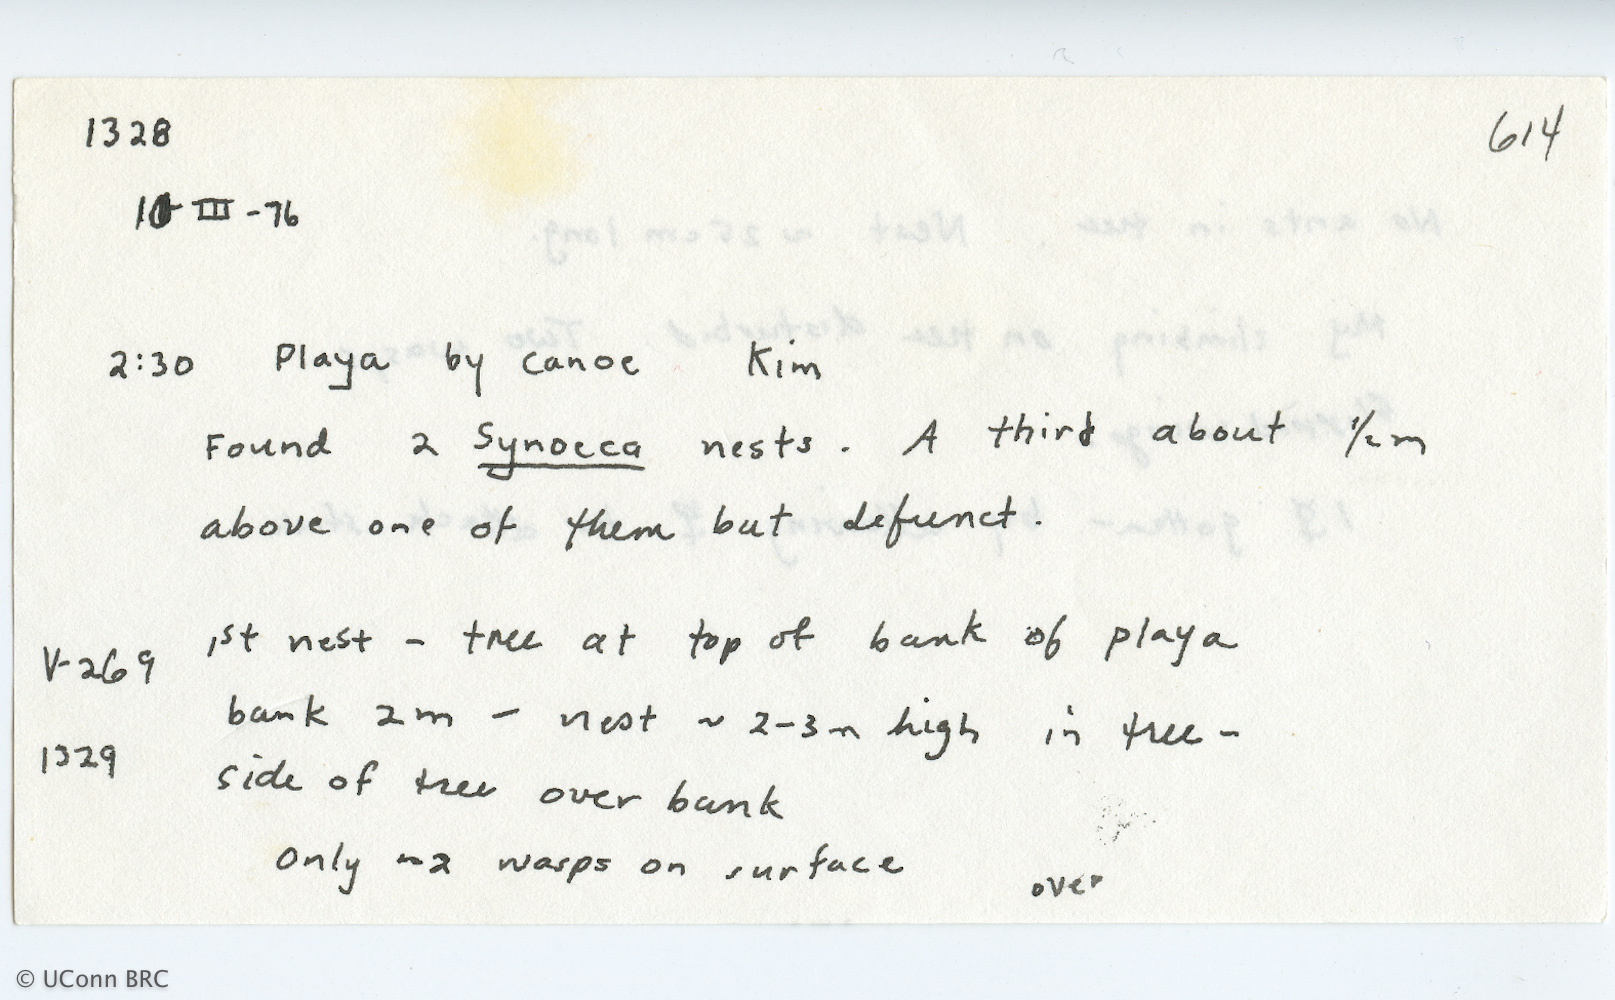 1328
614
10 III -76
2:30 Playa by canoe Kim
Found 2 Synoeca nests. A third about 1/2 m
above one of them but defunct.
V-269
1st nest - tree at top of bank of playa
bank 2m - nest ~ 2-3m high in tree -
1329
side of tree over bank
Only ~2 wasps on surface
over
© UConn BRC